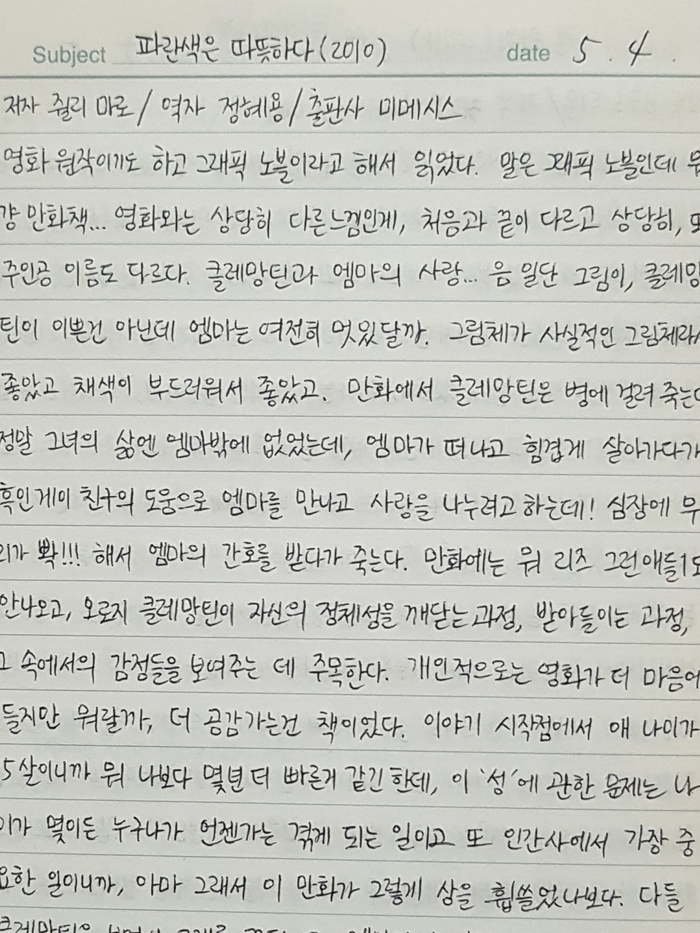 Subject 파란색은 따뜻하다(2010) date 5.4.
저자 쥘리 마로/역자 정혜용/출판사 미메시스
영화 원작이기도 하고 그래픽 노블이라고 해서 읽었다. 말은 그래픽 노블인데
걍 만화책... 영화와는 상당히 다른느낌인게, 처음과 끝이 다르고 상당히,
주인공 이름도 다르다. 클레망틴과 엠마의 사랑... 음 일단 그림이, 클레망
틴이 이쁜건 아닌데 엠마는 여전히 멋있달까. 그림체가 사실적인 그림체라서
좋았고 채색이 부드러워서 좋았고. 만화에서 클레망틴은 병에 걸려 죽는
정말 그녀의 삶엔 엠마밖에 없었는데, 엠마가 떠나고 힘겹게 살아가다가
흑인게이 친구의 도움으로 엠마를 만나고 사랑을 나누려고 하는데! 심장에 무
리가 뽝!!! 해서 엠마의 간호를 받다가 죽는다. 만화에는 뭐 리즈 그런애들1도
안나오고, 오로지 클레망틴이 자신의 정체성을 깨닫는 과정, 받아들이는 과정,
그 속에서의 감정들을 보여주는 데 주목한다. 개인적으로는 영화가 더 마음에
들지만 뭐랄까, 더 공감가는건 책이었다. 이야기 시작점에서 얘 나이가
5살이니까 뭐 나보다 몇년 더 빠른거 같긴 한데, 이 '성'에 관한 문제는 나
이가 몇이든 누구나가 언젠가는 겪게 되는 일이고 또 인간사에서 가장 중
요한 일이니까, 아마 그래서 이 만화가 그렇게 상을 휩쓸었나보다. 다들